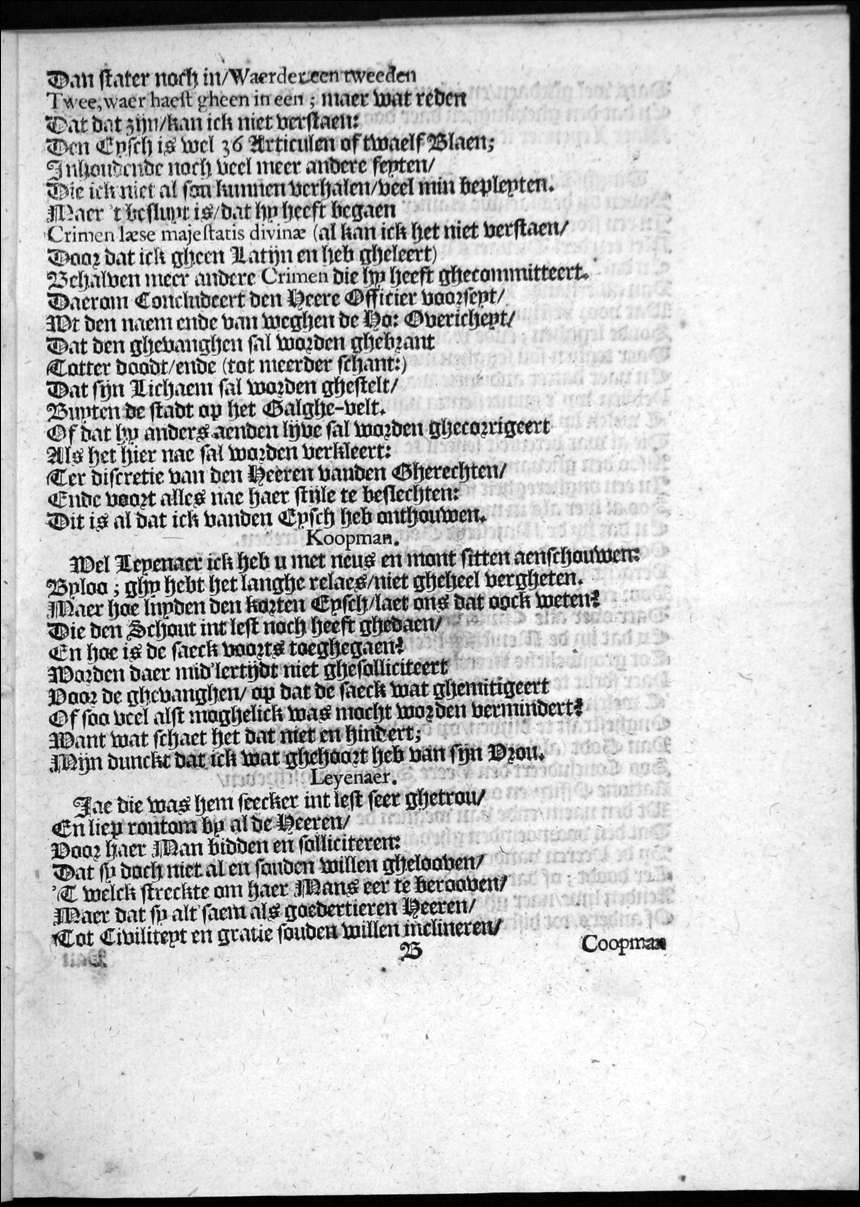 Dan stater noch in/Waerder een tweeden
Twee, waer haest gheen in een ; maer wat reden
Dat dat zijn/kan ick niet verstaen:
Den Eysch is wel 36 Articulen of twaelf Blaen;
Inhoudende noch veel meer andere feyten/
Die ick niet al sou kunnen verhalen/veel min bepleyten.
Maer 't besluyt is/dat hy heeft begaen
Crimen læse majestatis divinæ (al kan ick het niet verstaen/
Door dat ick gheen Latijn en heb gheleert)
Behalven meer andere Crimen die hy heeft ghecommitteert.
Daerom Concludeert den Heere Officier voorseyt/
Wt den naem ende van weghen de Ho: Overicheyt/
Dat den ghevanghen sal worden ghebrant
Totter doodt/ende (tot meerder schant:)
Dat sijn Lichaem sal worden ghestelt/
Buyten de stadt op het Galghe-velt.
Of dat hy anders aenden lijve sal worden ghecorrigeert
Als het hier nae sal worden verkleert:
Ter discretie van den Heeren vanden Gherechten/
Ende voort alles nae haer stijle te beslechten:
Dit is al dat ick vanden Eysch heb onthouwen.
Koopman.
Wel Leyenaer ick heb u met neus en mont sitten aenschouwen:
Byloo ; ghy hebt het langhe relaes/niet gheheel vergheten.
Maer hoe luyden den korten Eysch/laet ons dat oock weten?
Die den Schout int lest noch heeft ghedaen/
En hoe is de saeck voorts toeghegaen?
Worden daer mid'lertijdt niet ghesolliciteert
Voor de ghevanghen/ op dat de saeck wat ghemitigeert
Of soo veel alst moghelick was mocht worden vermindert?
Want wat schaet het dat niet en hindert;
Mijn dunckt dat ick wat ghehoort heb van sijn Vrou.
Leyenaer.
Jae die was hem seecker int lest seer ghetrou/
En liep rontom by al de Heeren/
Voor haer Man bidden en solliciteren:
Dat sy doch niet al en souden willen ghelooven/
'T welck streckte om haer Mans eer te berooven/
Maer dat sy alt'saem als goedertieren Heeren/
Tot Civiliteyt en gratie souden willen inclineren/
B
Coopman